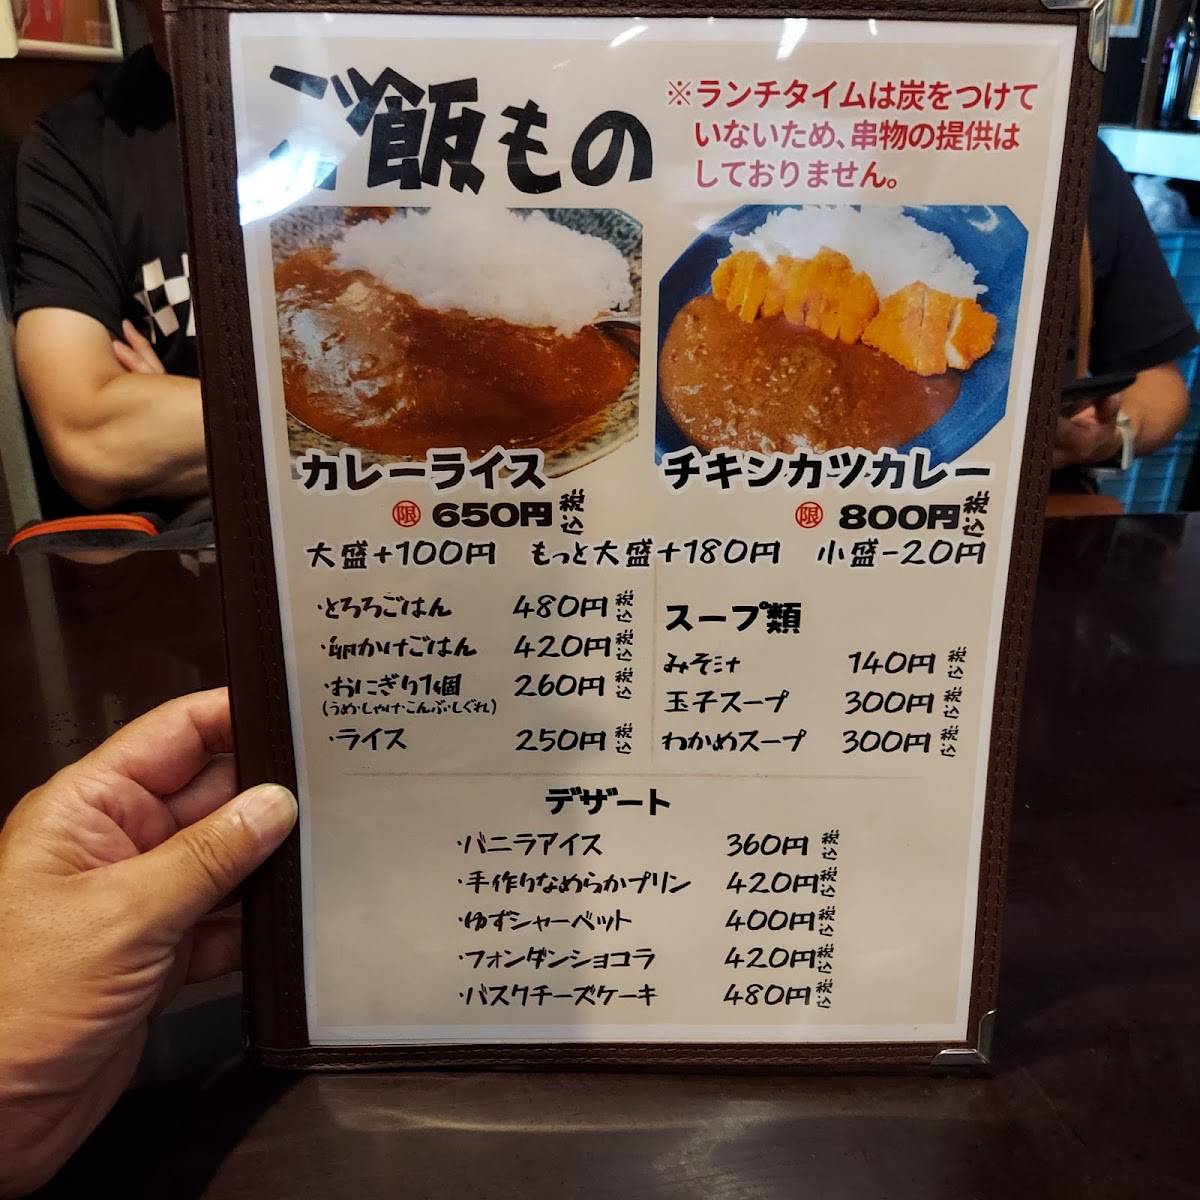 ご飯もの
※ランチタイムは炭をつけて
いないため、串物の提供は
しておりません。
カレーライス
限 650円 税込
チキンカツカレー
限 800円 税込
大盛+100円 もっと大盛+180円 小盛-20円
・とろろごはん 480円 税込
・卵かけごはん 420円 税込
・おにぎり1個 260円 税込
(うめ・しゃけ・こんぶ・しぐれ)
・ライス 250円 税込
スープ類
みそ汁 140円 税込
玉子スープ 300円 税込
わかめスープ 300円 税込
デザート
・バニラアイス 360円 税込
・手作りなめらかプリン 420円 税込
・ゆずシャーベット 400円 税込
・フォンダンショコラ 420円 税込
・バスクチーズケーキ 480円 税込